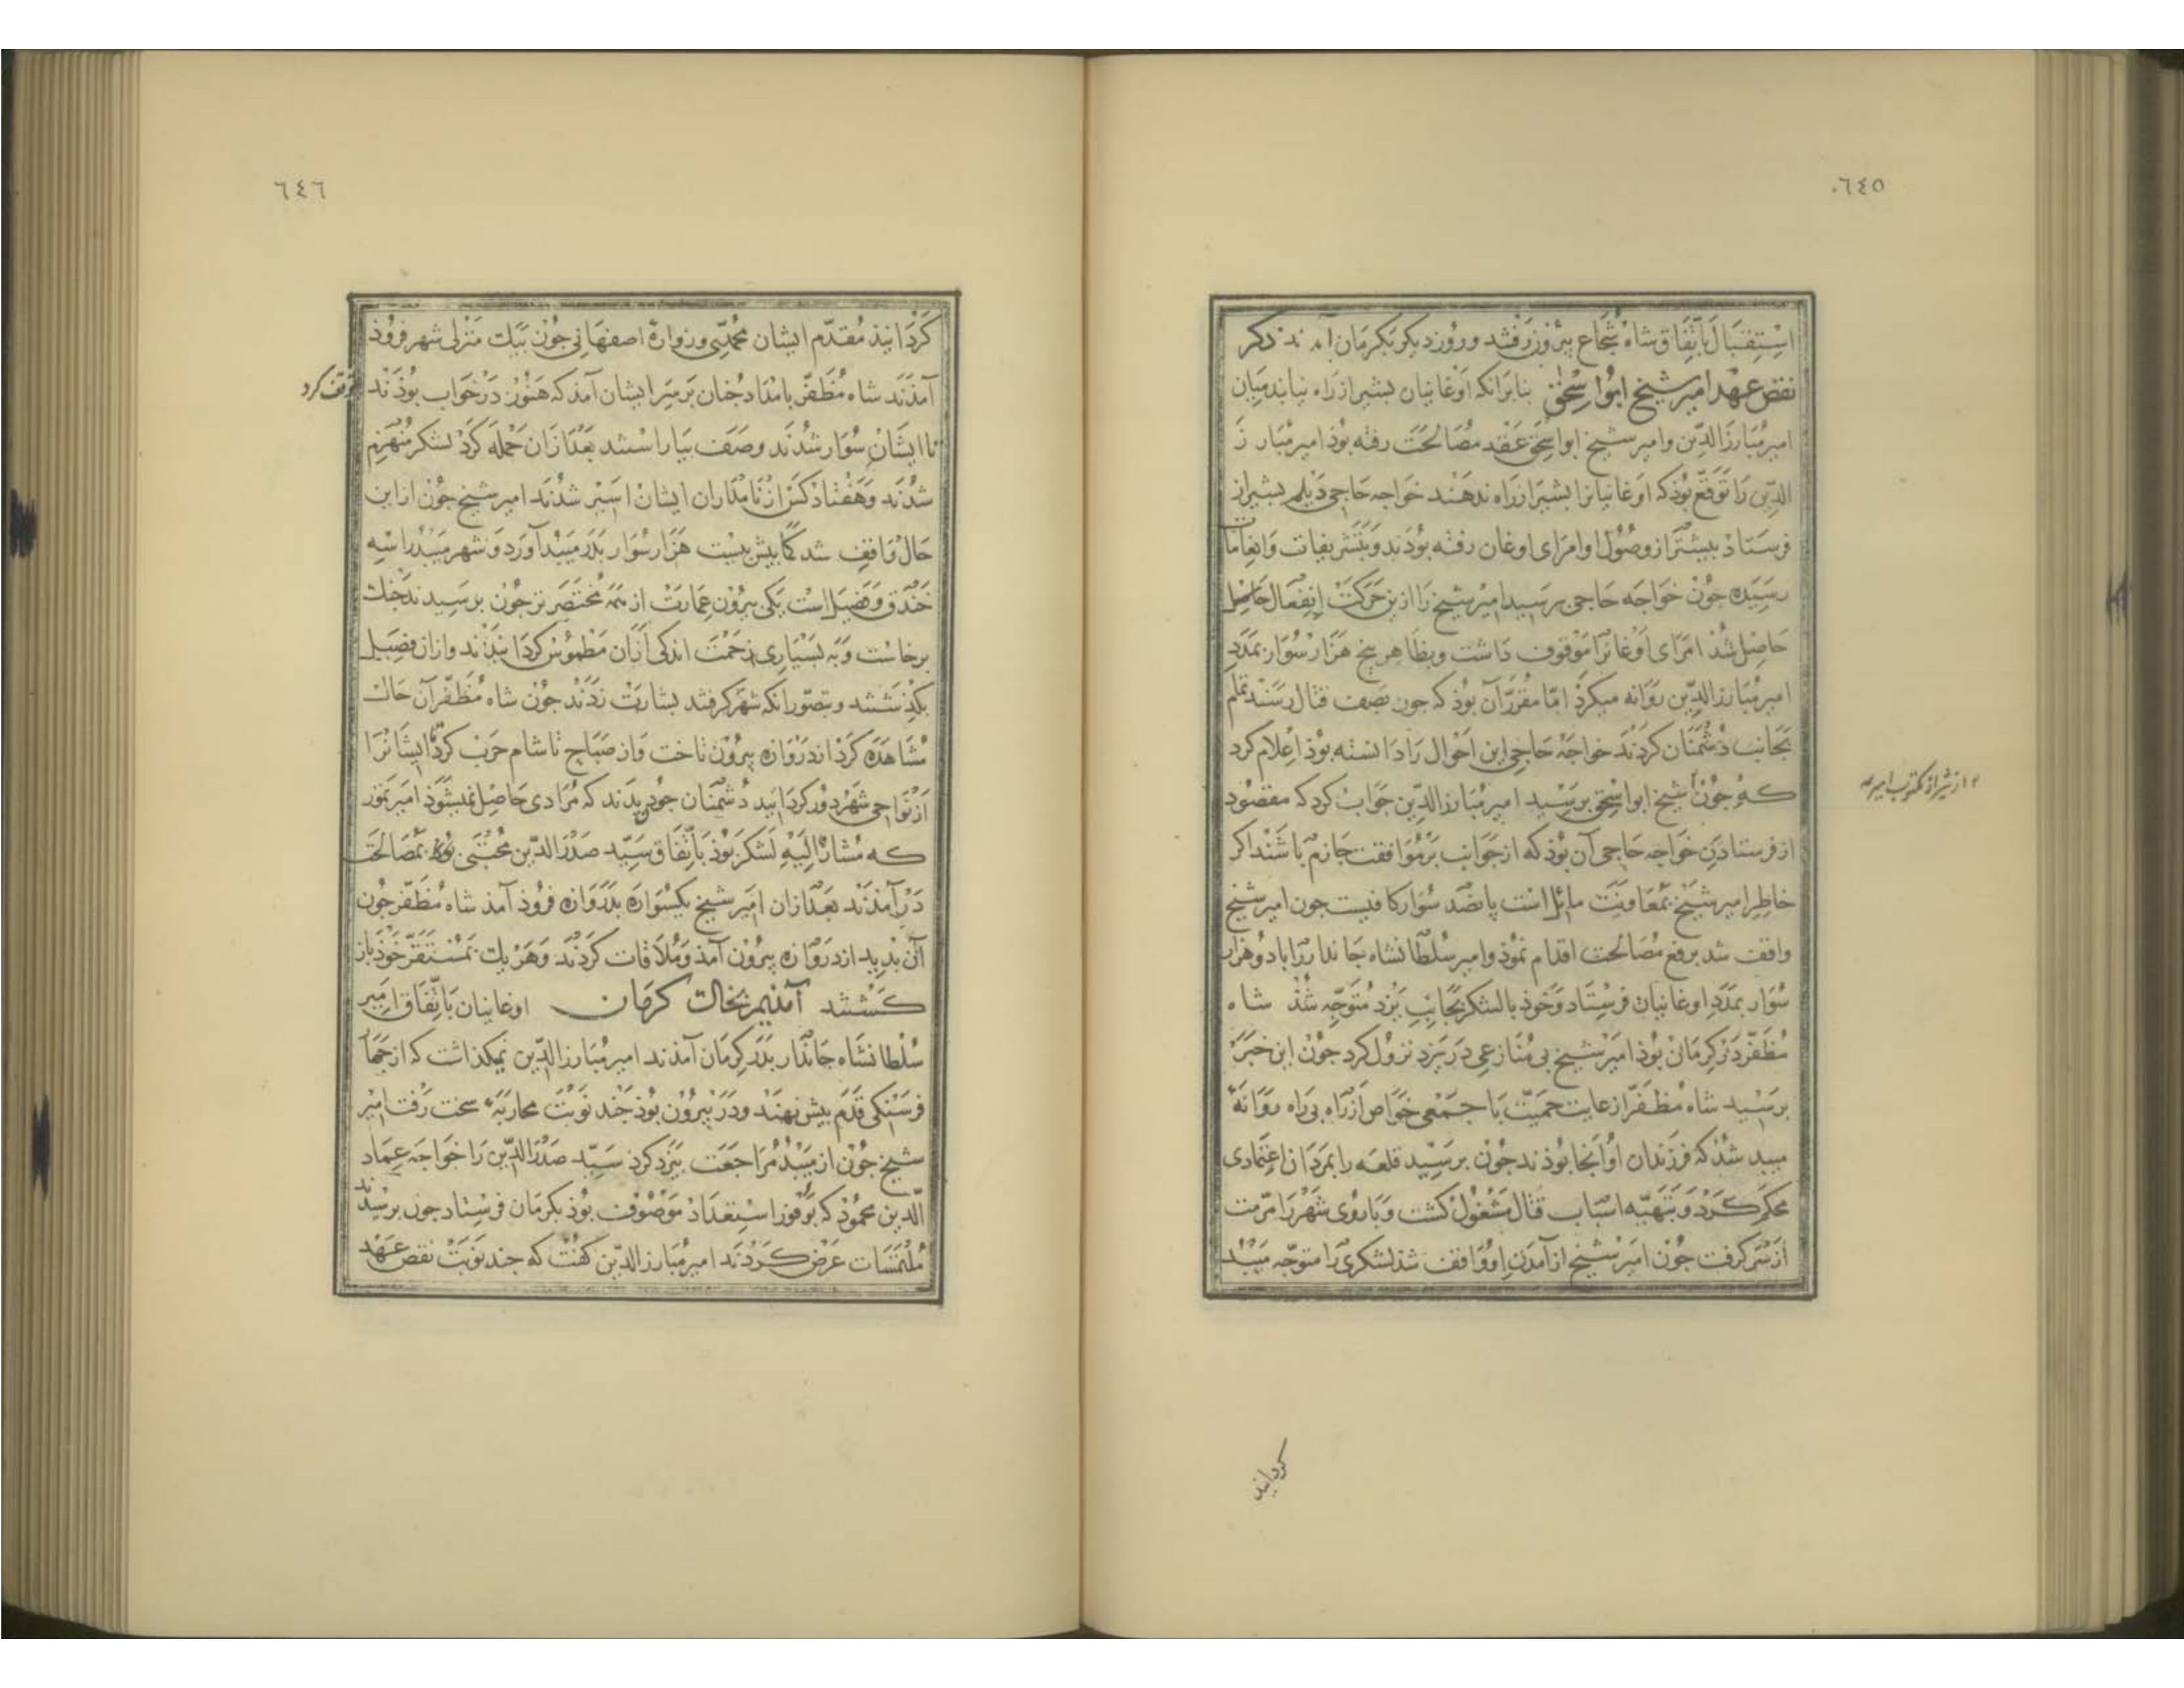 ٦٤٥
استقبال باتفاق شاه شجاع بیرون رفتند و روز دیکر بکرمان آمدند ذکر
نقض عهد امیر شیخ ابو اسحق بنابرانکه اوغانیان بشیراز راه نیابند میان
امیر مبارز الدین و امیر شیخ ابو اسحق عقد مصالحت رفته بوذ امیر مبارز
الدین را توقع بوذ که اوغانیانرا بشیراز راه ندهند خواجه حاجی دیلم بشیراز
فرستاد بیشتر از وصول او امرای اوغان رفته بوذند و بتشریفات و انعامات
رسیده جون خواجه حاجی برسید امیر شیخ را ازین حرکت انفعال حاصل
حاصل شذ امرای اوغانرا موقوف داشت و بظاهر پنج هزار سوار بمدد
امیر مبارز الدین روانه میکرد اما مقرر آن بوذ که جون بصف قتال رسند تمام
بجانب دشمنان کردند خواجه حاجی این احوال را دانسته بوذ اعلام کرد
که جون شیخ ابو اسحق برسید امیر مبارز الدین جواب کرد که مقصود
۱۲ از شیراز مکتوب امیر
از فرستادن خواجه حاجی آن بوذ که از جوانب بر موافقت جازم باشند اکر
خاطر امیر شیخ بمعاونت مائل است پانصد سوار کافیست جون امیر شیخ
واقف شد برفع مصالحت اقدام نموذ و امیر سلطانشاه جاندار را با دو هزار
سوار بمدد اوغانیان فرستاد و خوذ با لشکر بجانب یزد متوجه شذ شاه
مظفر در کرمان بوذ امیر شیخ بی منازعی در یزد نزول کرد جون این خبر
برسید شاه مظفر از غایت حمیت با جمعی خواص از راه بی راه روانهٔ
میبد شذ که فرزندان او آنجا بوذند جون برسید قلعه را بمردان اعتمادی
محکم کرد و بتهیه اسباب قتال مشغول کشت و باروی شهر را مرمت
از سر کرفت جون امیر شیخ از آمدن او واقف شد لشکری را متوجه میبد
کردانید
٦٤٦
کردانیذ مقدم ایشان محمدبی و زواره اصفهانی جون بیک منزلی شهر فروذ
آمذند شاه مظفر بامداد جنان بر سر ایشان آمذ که هنوز در خواب بوذند
توقف کرد
تا ایشان سوار شذند و صف بیاراستند بعد ازان حمله کرد لشکر منهزم
شذند و هفتاد کس از نامداران ایشان اسیر شذند امیر شیخ جون از این
حال واقف شد کمابیش بیست هزار سوار بدر میبد آورد و شهر میبد را سه
خندق و فصیل است یکی بیرون عمارت از همه مختصرتر جون برسیدند جنک
برخاست و به بسیاری زحمت اندکی ازان مطموس کردانیذند و ازان فصیل
بکذشتند و بتصور انکه شهر کرفتند بشارت زدند جون شاه مظفر آن حالت
مشاهده کرد از دروازه بیرون تاخت و از صباح تا شام حرب کرد و ایشانرا
از نواحی شهر دور کردانید دشمنان جون دیدند که مرادی حاصل نمیشوذ امیر تمور
که مشارٌ الیه لشکر بوذ باتفاق سید صدر الدین مجتبی بمصالحت
درآمذند بعد ازان امیر شیخ یکسواره بدروازه فروذ آمذ شاه مظفر جون
آن بدید از دروازه بیرون آمذ و ملاقات کردند و هر یک بمستقر خوذ باز
کشتند آمذیم بحالت کرمان اوغانیان باتفاق امیر
سلطانشاه جاندار بدر کرمان آمذند امیر مبارز الدین نمیکذاشت که از جهار
فرسنکی قدم بیش نهند و در بیرون بوذ جند نوبت محاربهٔ سخت رفت امیر
شیخ جون از میبد مراجعت بیزد کرد سید صدر الدین را خواجه عماد
الدین محموذ که بوفور استعداد موصوف بوذ بکرمان فرستاد جون برسیدند
ملتمسات عرض کردند امیر مبارز الدین کفت که جند نوبت نقض عهد